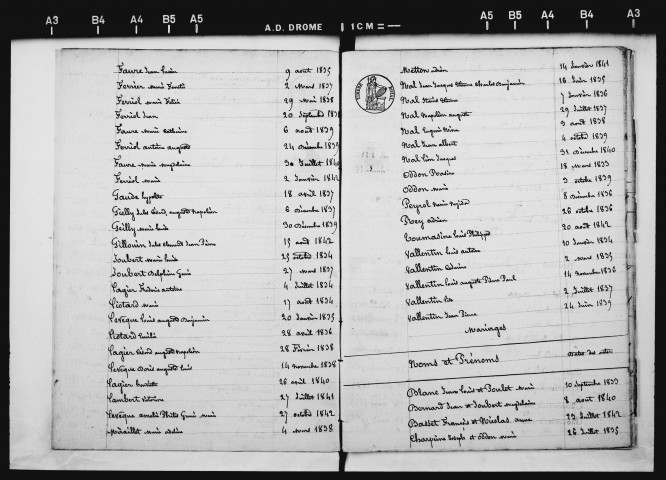 A3 B4 A4 B5 A5 A.D. DROME 1CM A5 B5 A4 B4 A3
Faure Jean Louis 9 août 1835
Ferrier Marie 2 Mars 1837
Ferriol Marie 29 Mai 1838
Ferriol Jean 20 Septembre 1838
Faure Marie Catherine 6 août 1839
Ferriol antoine auguste 24 décembre 1839
Faure Marie Magdelaine 30 Juillet 1840
Ferriol Marie 2 Janvier 1842
Gaude hyppolite 18 avril 1837
Geilly Jules auguste Napoléon 6 décembre 1837
Geilly Marie Louise 30 décembre 1839
Gillouin Jules Jean Pierre 15 août 1842
Joubert Marie Louise 25 octobre 1834
Joubert Delphine 27 Mars 1837
Lagier Frédéric antoine 4 Juillet 1834
Liotard Marie 17 août 1834
Levêque Louis auguste Benjamin 20 Janvier 1835
Liotard Emilie 28 avril 1836
Lagier auguste Napoléon 28 Février 1838
Levêque Louis 14 novembre 1838
Lagier henriette 26 avril 1840
Lambert victoire 27 Juillet 1841
Levêque Marie 27 octobre 1842
Miraillet Marie 4 Mars 1838
Metton 14 Janvier 1841
Nal Jean Jacques Etienne Charles Benjamin 16 Juin 1835
Nal Marie 7 Janvier 1836
Nal Napoléon auguste 29 Juillet 1837
Nal 3 août 1838
Nal Jean albert 4 octobre 1839
Nal Jacques 31 décembre 1840
Oddon Rosalie 18 Mars 1833
Oddon Marie 3 octobre 1839
Peyrol Marie 8 décembre 1836
Rey adrien 26 octobre 1836
Toumasine Louis Philippe 20 août 1842
Vallentin Louis antoine 10 Janvier 1834
Vallentin 2 Mars 1835
Vallentin Louis auguste Pierre Paul 14 novembre 1836
Vallentin 2 Juillet 1837
Vallentin Jean Pierre 24 Juin 1839
Mariages
Noms et Prénoms Dates des actes
Blanc Jean Louis et Poulet Marie 10 Septembre 1833
Bernard Jean et Joubert Magdelaine 8 août 1840
Basset François et Nicolas anne 23 Juillet 1842
Charpène Joseph et Oddon Marie 26 Juillet 1835